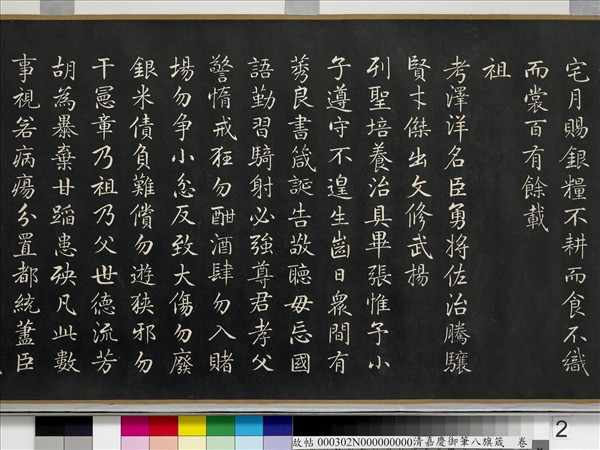 宅月賜銀糧不耕而食不織
而裳百有餘載
祖
考澤洋名臣勇將佐治騰驤
賢才傑出文修武揚
列聖培養治具畢張惟予小
子遵守不遑生齒日衆間有
莠良書箴誕告敬聽毋忘國
語勤習騎射必強尊君孝父
警惰戒狂勿酣酒肆勿入賭
場勿爭小忿反致大傷勿廢
銀米債負難償勿遊狹邪勿
干憲章乃祖乃父世德流芳
胡為暴棄甘蹈患殃凡此數
事視若病瘍分置都統藎臣
故帖 000302N000000000清嘉慶御筆八旗箴 卷
2